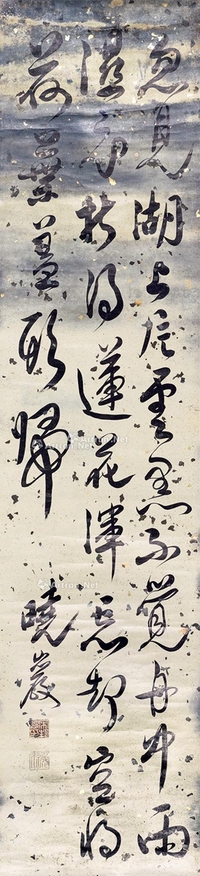 忽見湖上片雲黑不覺舟中雨
濕衣折得蓮花渾忘却空將
荷葉蓋頭歸
曉巖